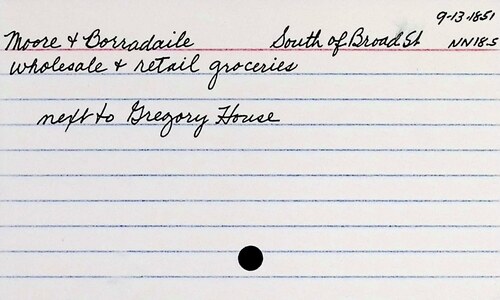 9-13-1851
Moore & Borradaile South of Broad St NN18-5
wholesale & retail groceries
next to Gregory House